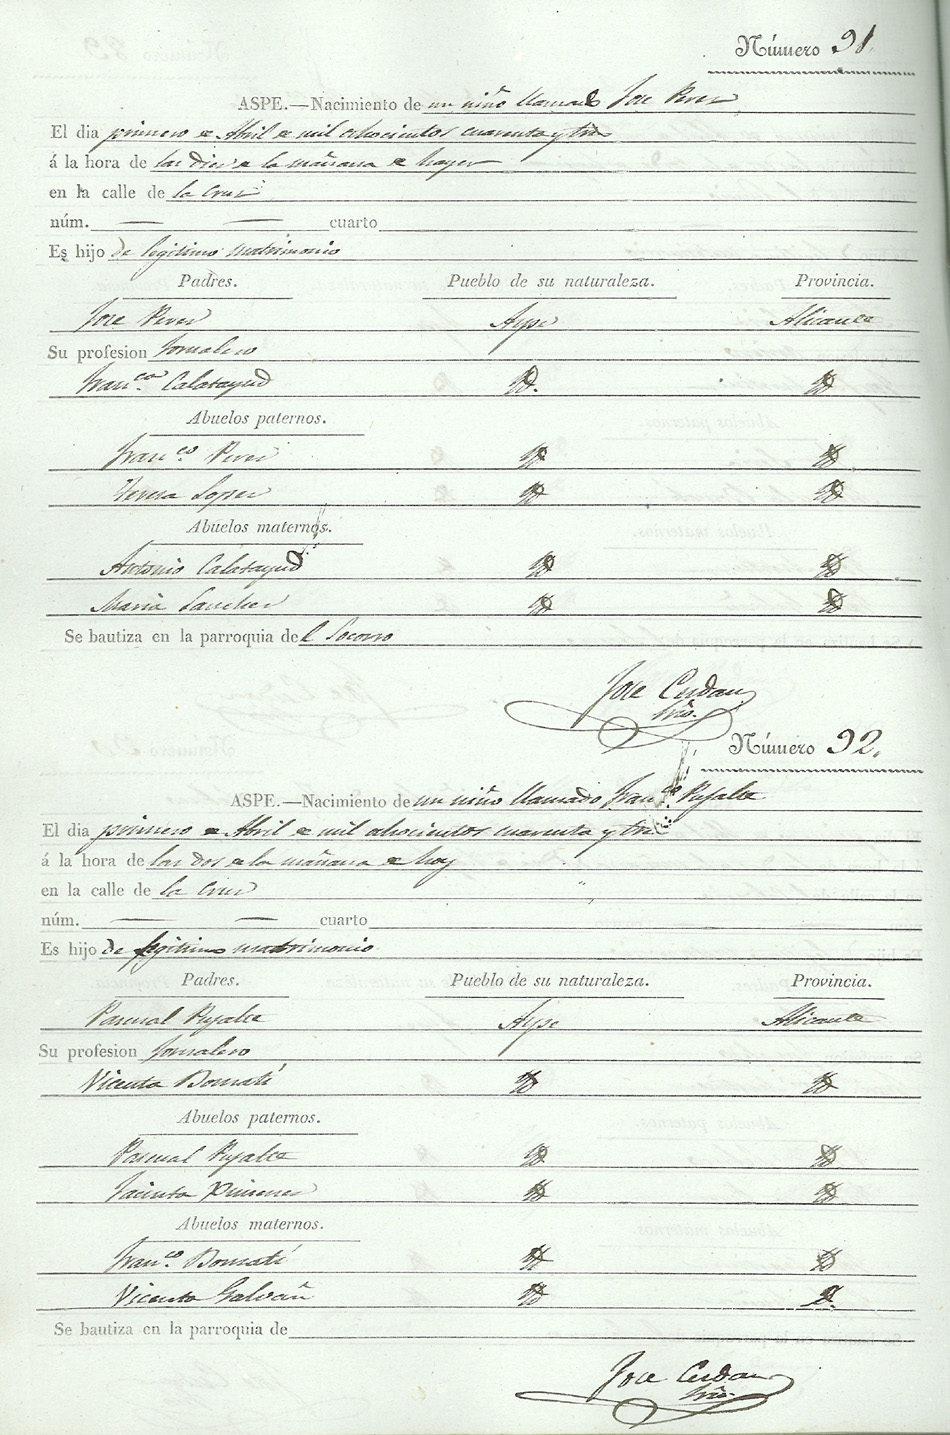 Número 91.
ASPE.—Nacimiento de un niño llamado Jose Perez
El dia primero de Abril de mil ochocientos cuarenta y tres
á la hora de las diez de la mañana de hayer
en la calle de la Cruz
núm. — — cuarto
Es hijo de legitimo matrimonio
Padres. Pueblo de su naturaleza. Provincia.
Jose Perez Aspe Alicante
Su profesion Jornalero
Franco. Calatayud Yd. Yd
Abuelos paternos.
Franco. Perez Yd Yd
Teresa Lopez Yd Yd
Abuelos maternos.
Antonio Calatayud Yd Yd
Maria Sanchez Yd Yd
Se bautiza en la parroquia del Socorro
Jose Cerdan
Srio.
Número 92.
ASPE.—Nacimiento de un niño llamado Franco. Pujalte
El dia primero de Abril de mil ochocientos cuarenta y tres
á la hora de las dos de la mañana de hoy
en la calle de la Cruz
núm. — — cuarto
Es hijo de legitimo matrimonio
Padres. Pueblo de su naturaleza. Provincia.
Pascual Pujalte Aspe Alicante
Su profesion Jornalero
Vicenta Bomatí Yd Yd
Abuelos paternos.
Pascual Pujalte Yd Yd
Jacinta Ximenez Yd Yd
Abuelos maternos.
Franco. Bomatí Yd Yd
Vicenta Galvañ Yd Yd.
Se bautiza en la parroquia de
Jose Cerdan
Srio.